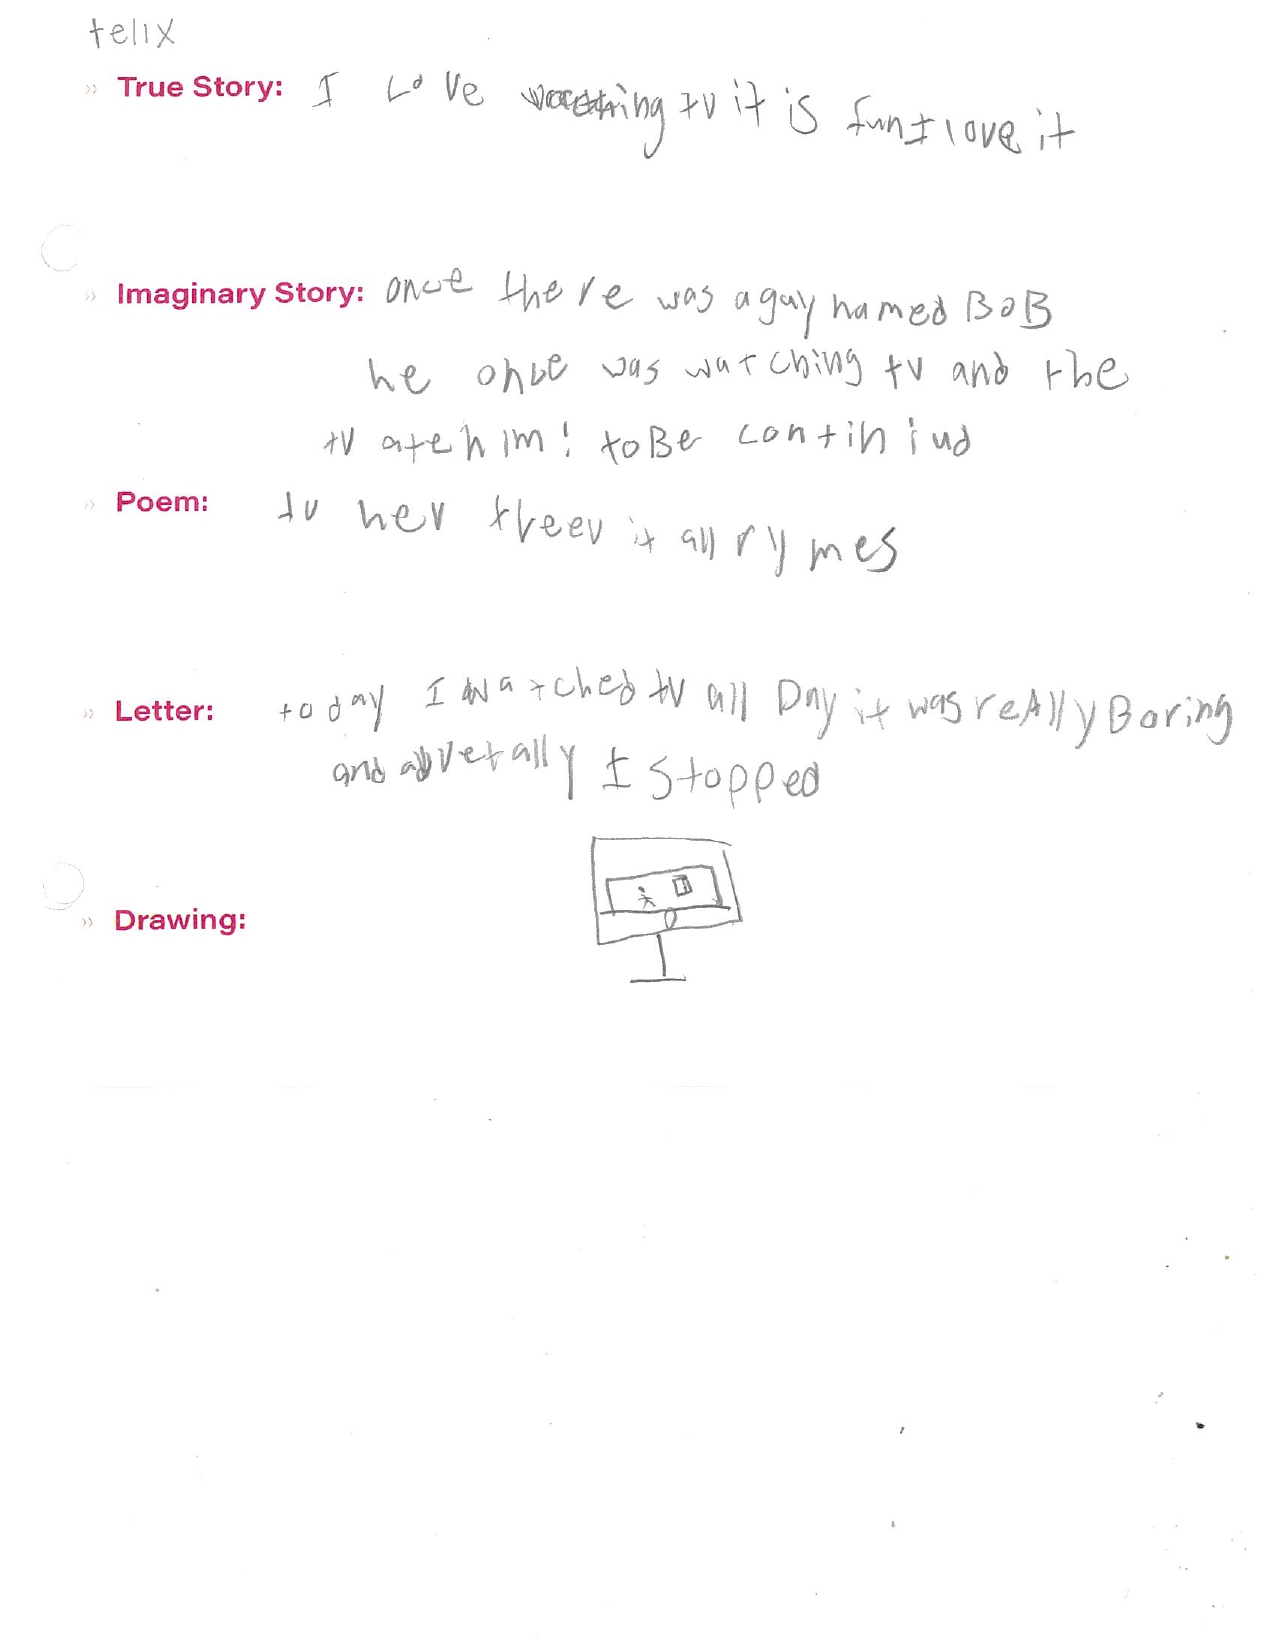 felix
» True Story: I Love watching tv it is fun I love it
» Imaginary Story: once there was a guy named BoB
he once was watching tv and the
tv ate him! to Be continiud
» Poem: tv nev treev it all rymes
» Letter: today I watched tv all Day it was reAlly Boring
and advetally I stopped
» Drawing: